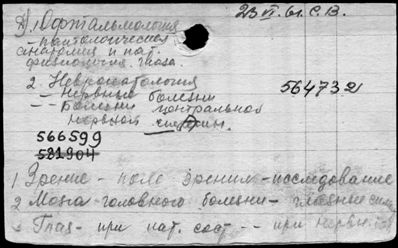 23 VI. 61. С.В.
Офтальмология
- патологическая
анатомия и пат.
физиология глаза.
2. Невропатология
- нервные болезни
-- болезни центральной
нервной
564732
566599
521904
1 Зрение - поле зрения - исследование
2 Мозга головного болезни - глазные
3 Глаз - при пат. сост -- при нервн.